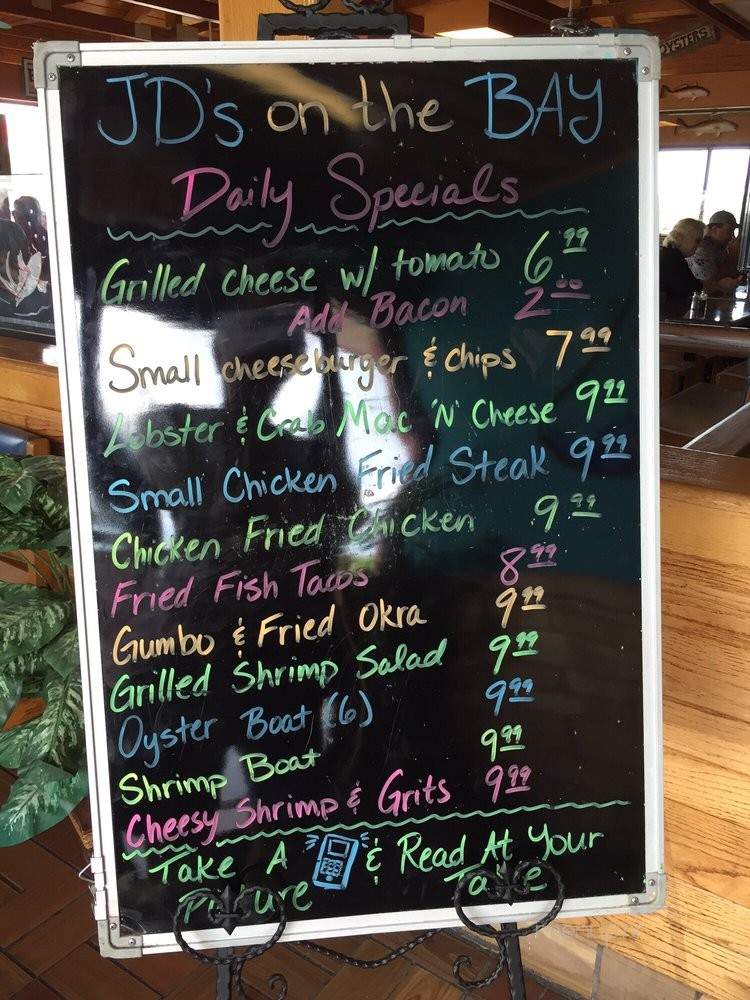 OYSTERS
JD's on the BAY
Daily Specials
Grilled cheese w/ tomato 6.99
Add Bacon 2.00
Small cheeseburger & chips 7.99
Lobster & Crab Mac 'N' Cheese 9.99
Small Chicken Fried Steak 9.99
Chicken Fried Chicken 9.99
Fried Fish Tacos 8.99
Gumbo & Fried Okra 9.99
Grilled Shrimp Salad 9.99
Oyster Boat (6) 9.99
Shrimp Boat 9.99
Cheesy Shrimp & Grits 9.99
Take A & Read At Your
Picture Table